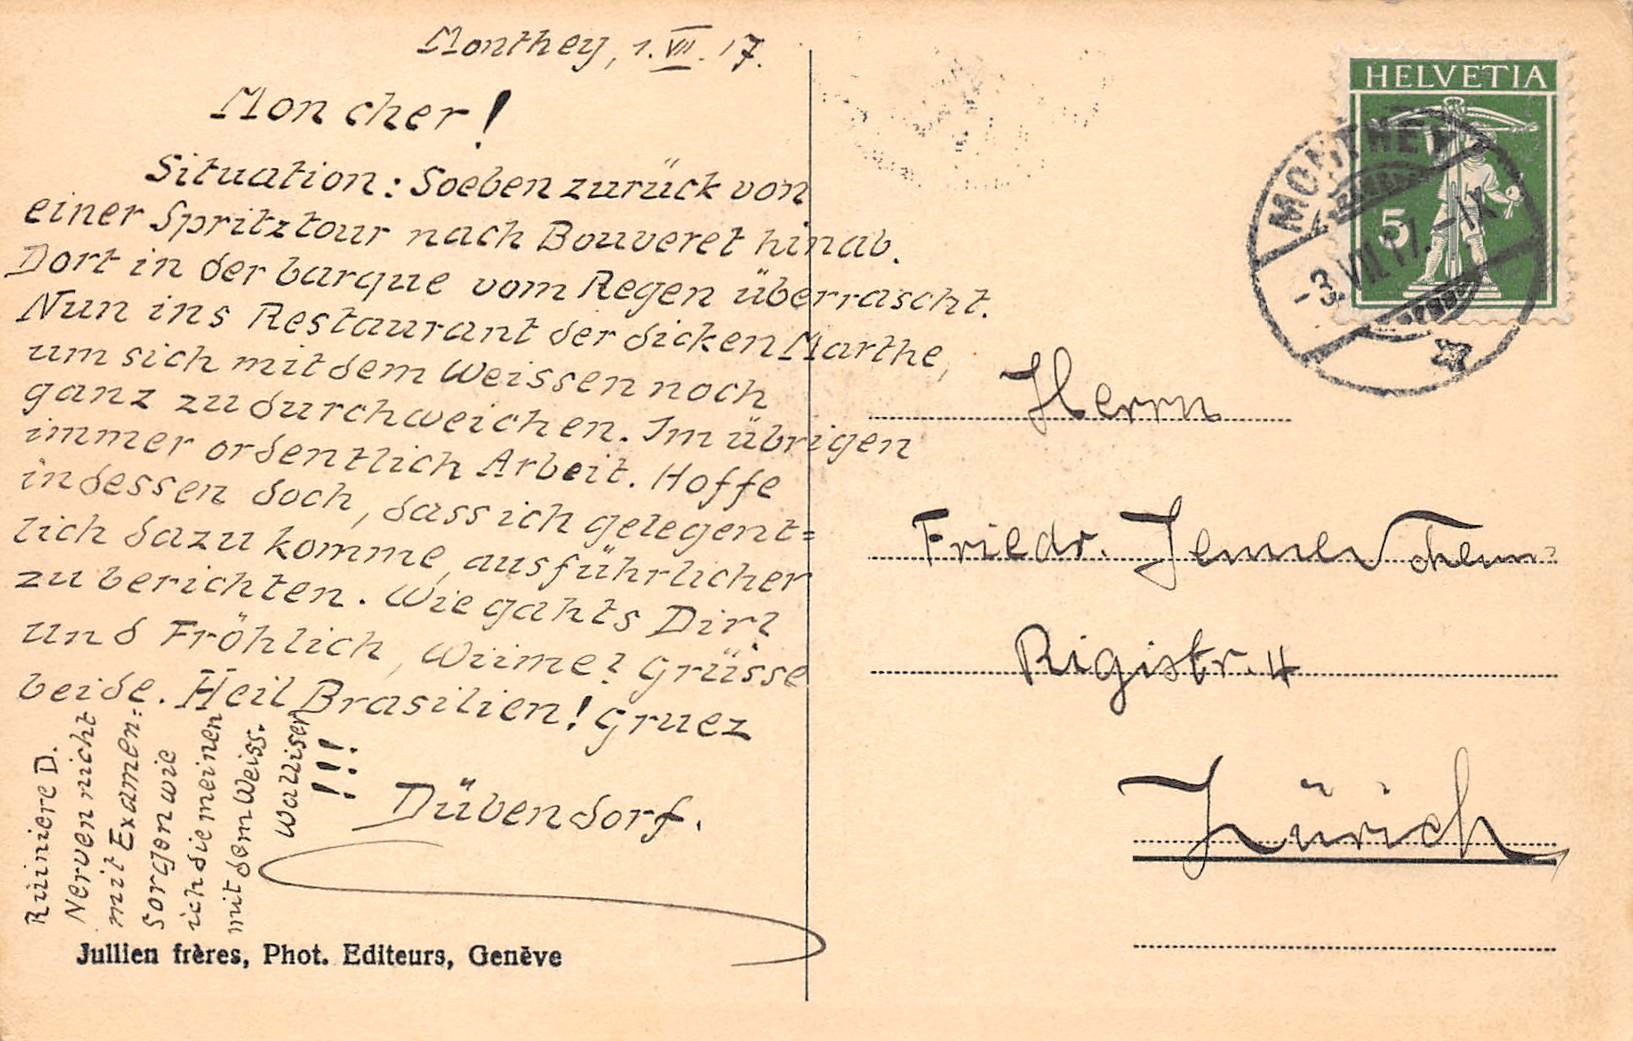 Monthey, 1. VII. 17.
Mon cher!
Situation: Soeben zurück von
einer Spritztour nach Bouveret hinab.
Dort in der barque vom Regen überrascht.
Nun ins Restaurant der dicken Marthe,
um sich mit dem Weissen noch
ganz zu durchweichen. Im übrigen
immer ordentlich Arbeit. Hoffe
indessen doch, dass ich gelegent=
lich dazu komme, ausführlicher
zu berichten. Wie gahts Dir?
und Fröhlich, Wiime? Grüsse
beide. Heil Brasilien! Gruez
Dübendorf.
Ruiniere D.
Nerven nicht
mit Examen=
sorgen wie
ich die meinen
mit dem Weiss.
Walliser
!!!
Jullien frères, Phot. Editeurs, Genève
HELVETIA
5
MONTHEY
-3.VII.17.-IX
Herrn
Friedr. chem.
Rigistr. 4
Zürich